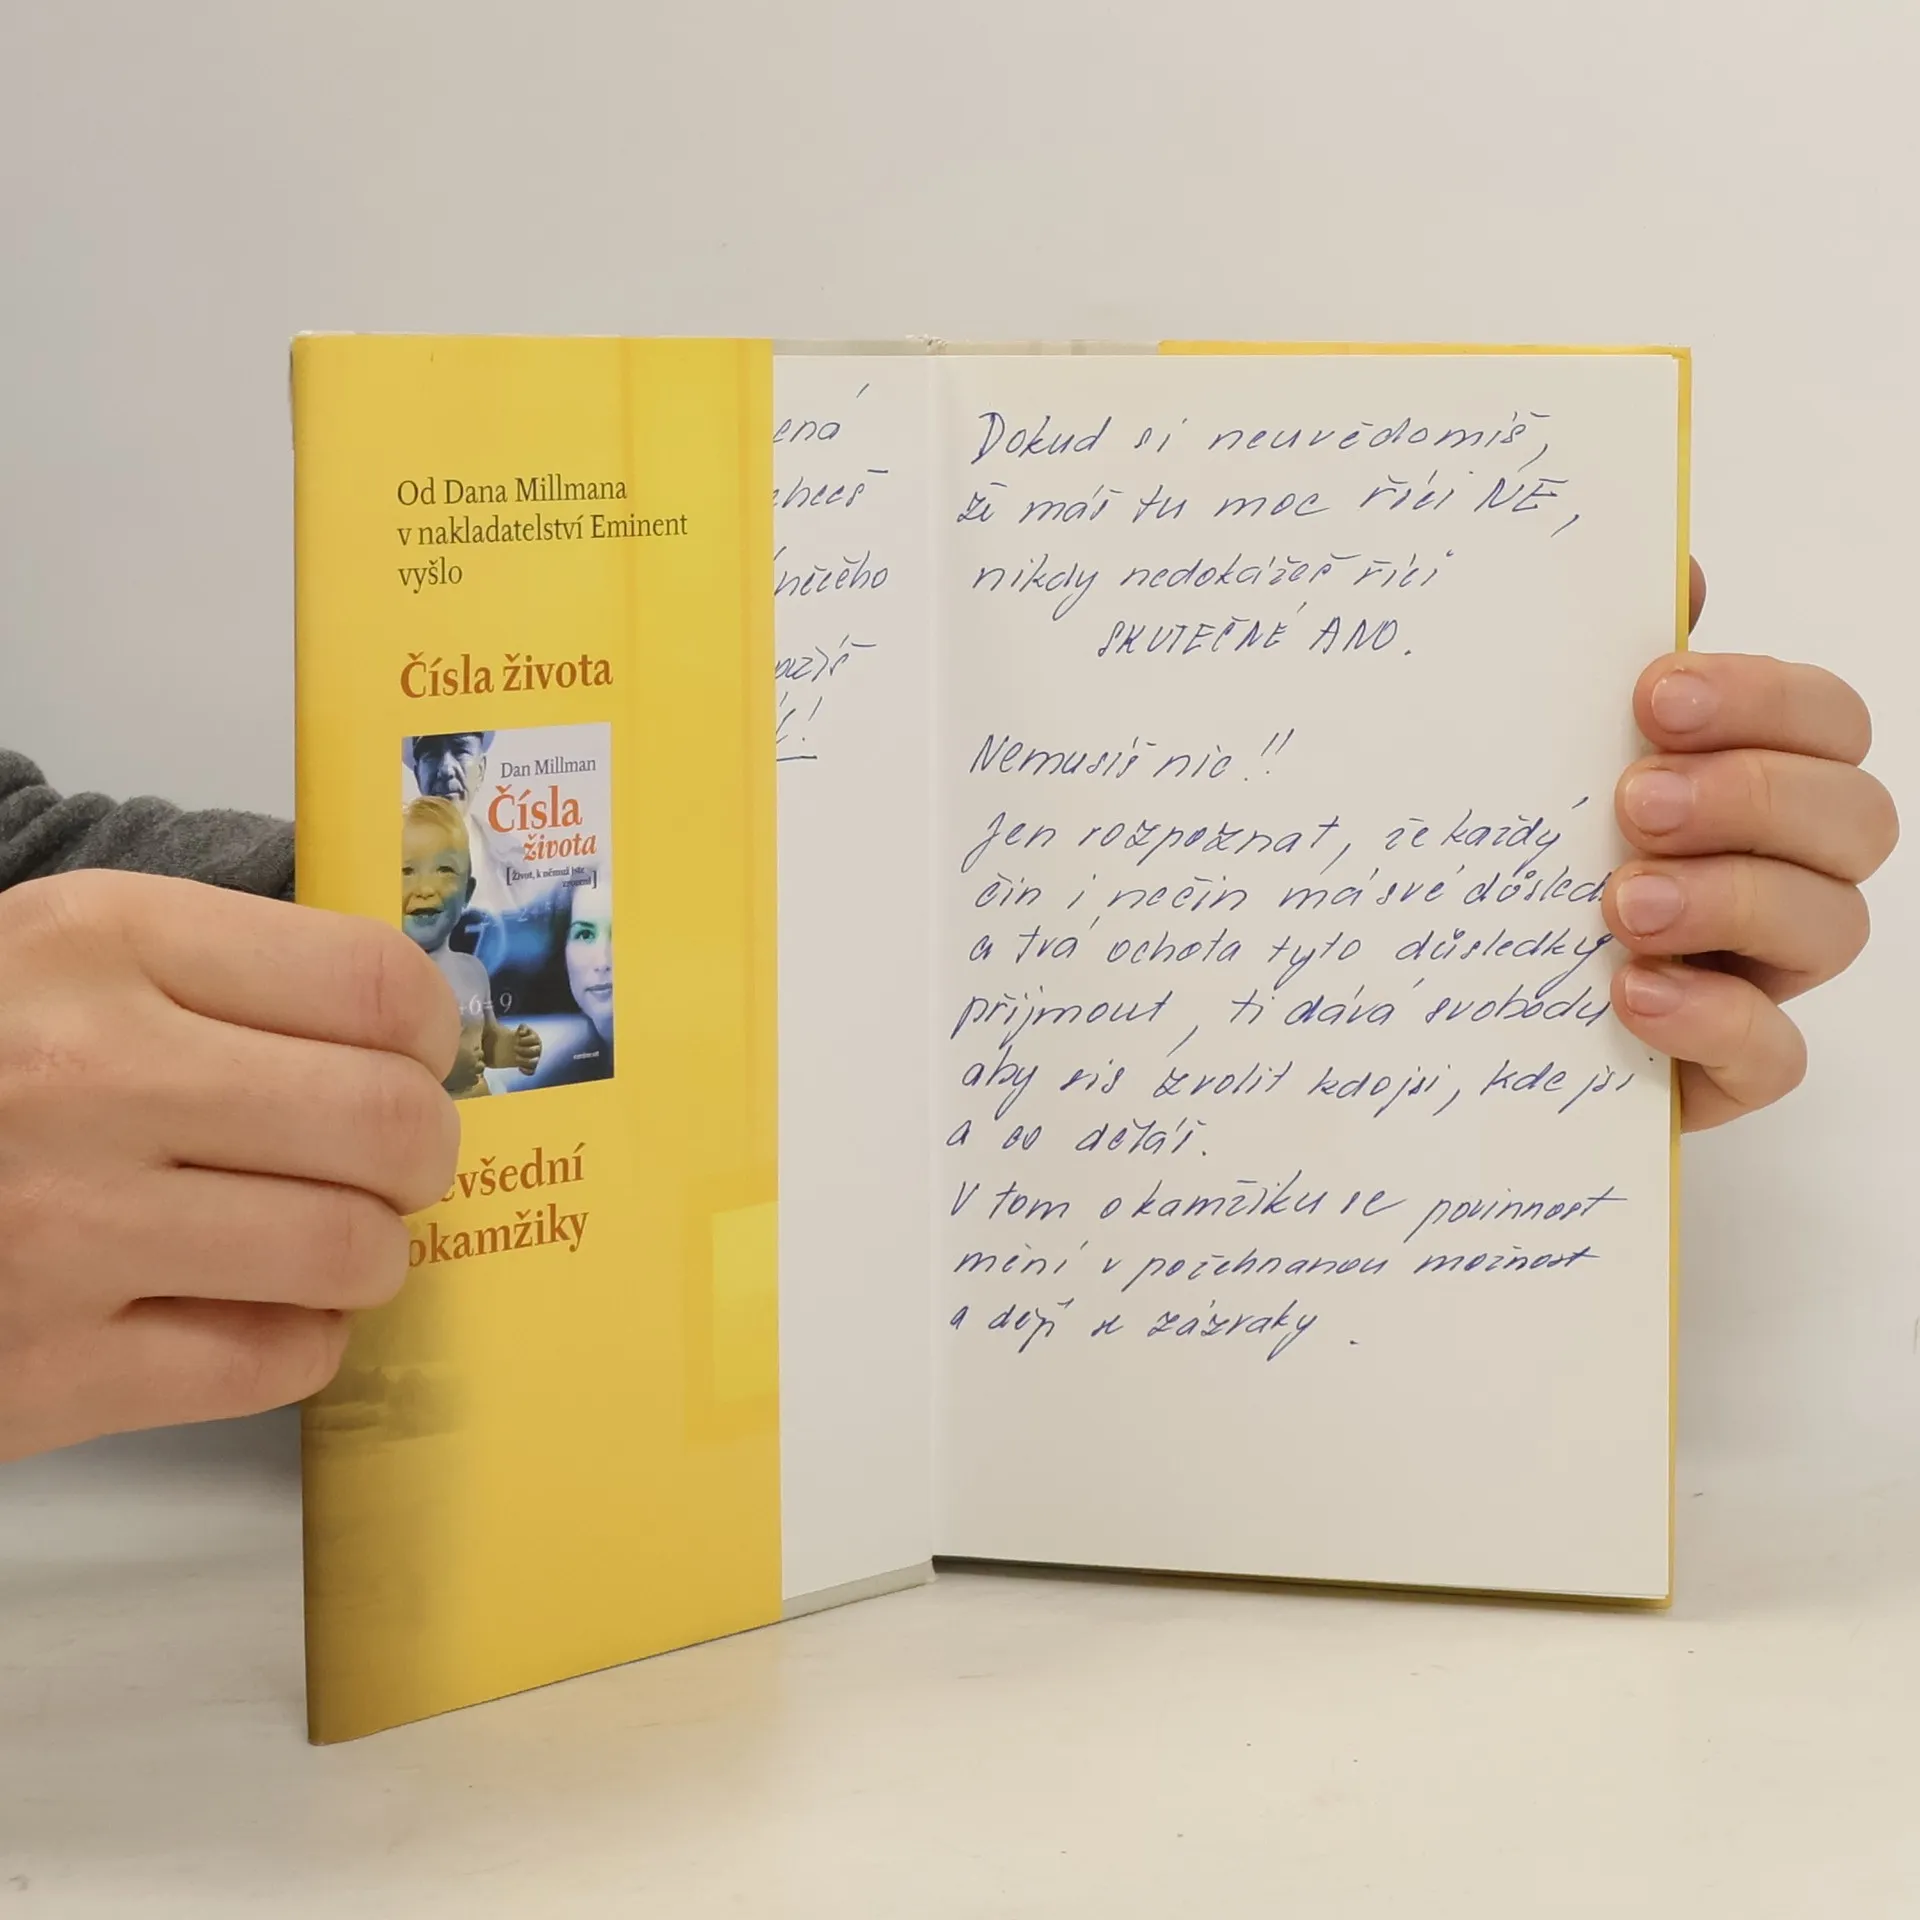 Od Dana Millmana
v nakladatelství Eminent
vyšlo
Čísla života
Dan Millman
Čísla
života
[Život, k němuž jste
zrozeni]
6=9
eminent
evšední
okamžiky
ená
chceš
něčeho
Dokud si neuvědomíš,
že máš tu moc říci NE,
nikdy nedokážeš říci
SKUTEČNÉ ANO.
Nemusíš nic!!
Jen rozpoznat, že každý
čin i nečin má své důsled
a tvá ochota tyto důsledky
přijmout, ti dává svobodu
aby sis zvolil kdo jsi, kde jsi
a co děláš.
V tom okamžiku se povinnost
mění v požehnanou možnost
a dějí se zázraky.